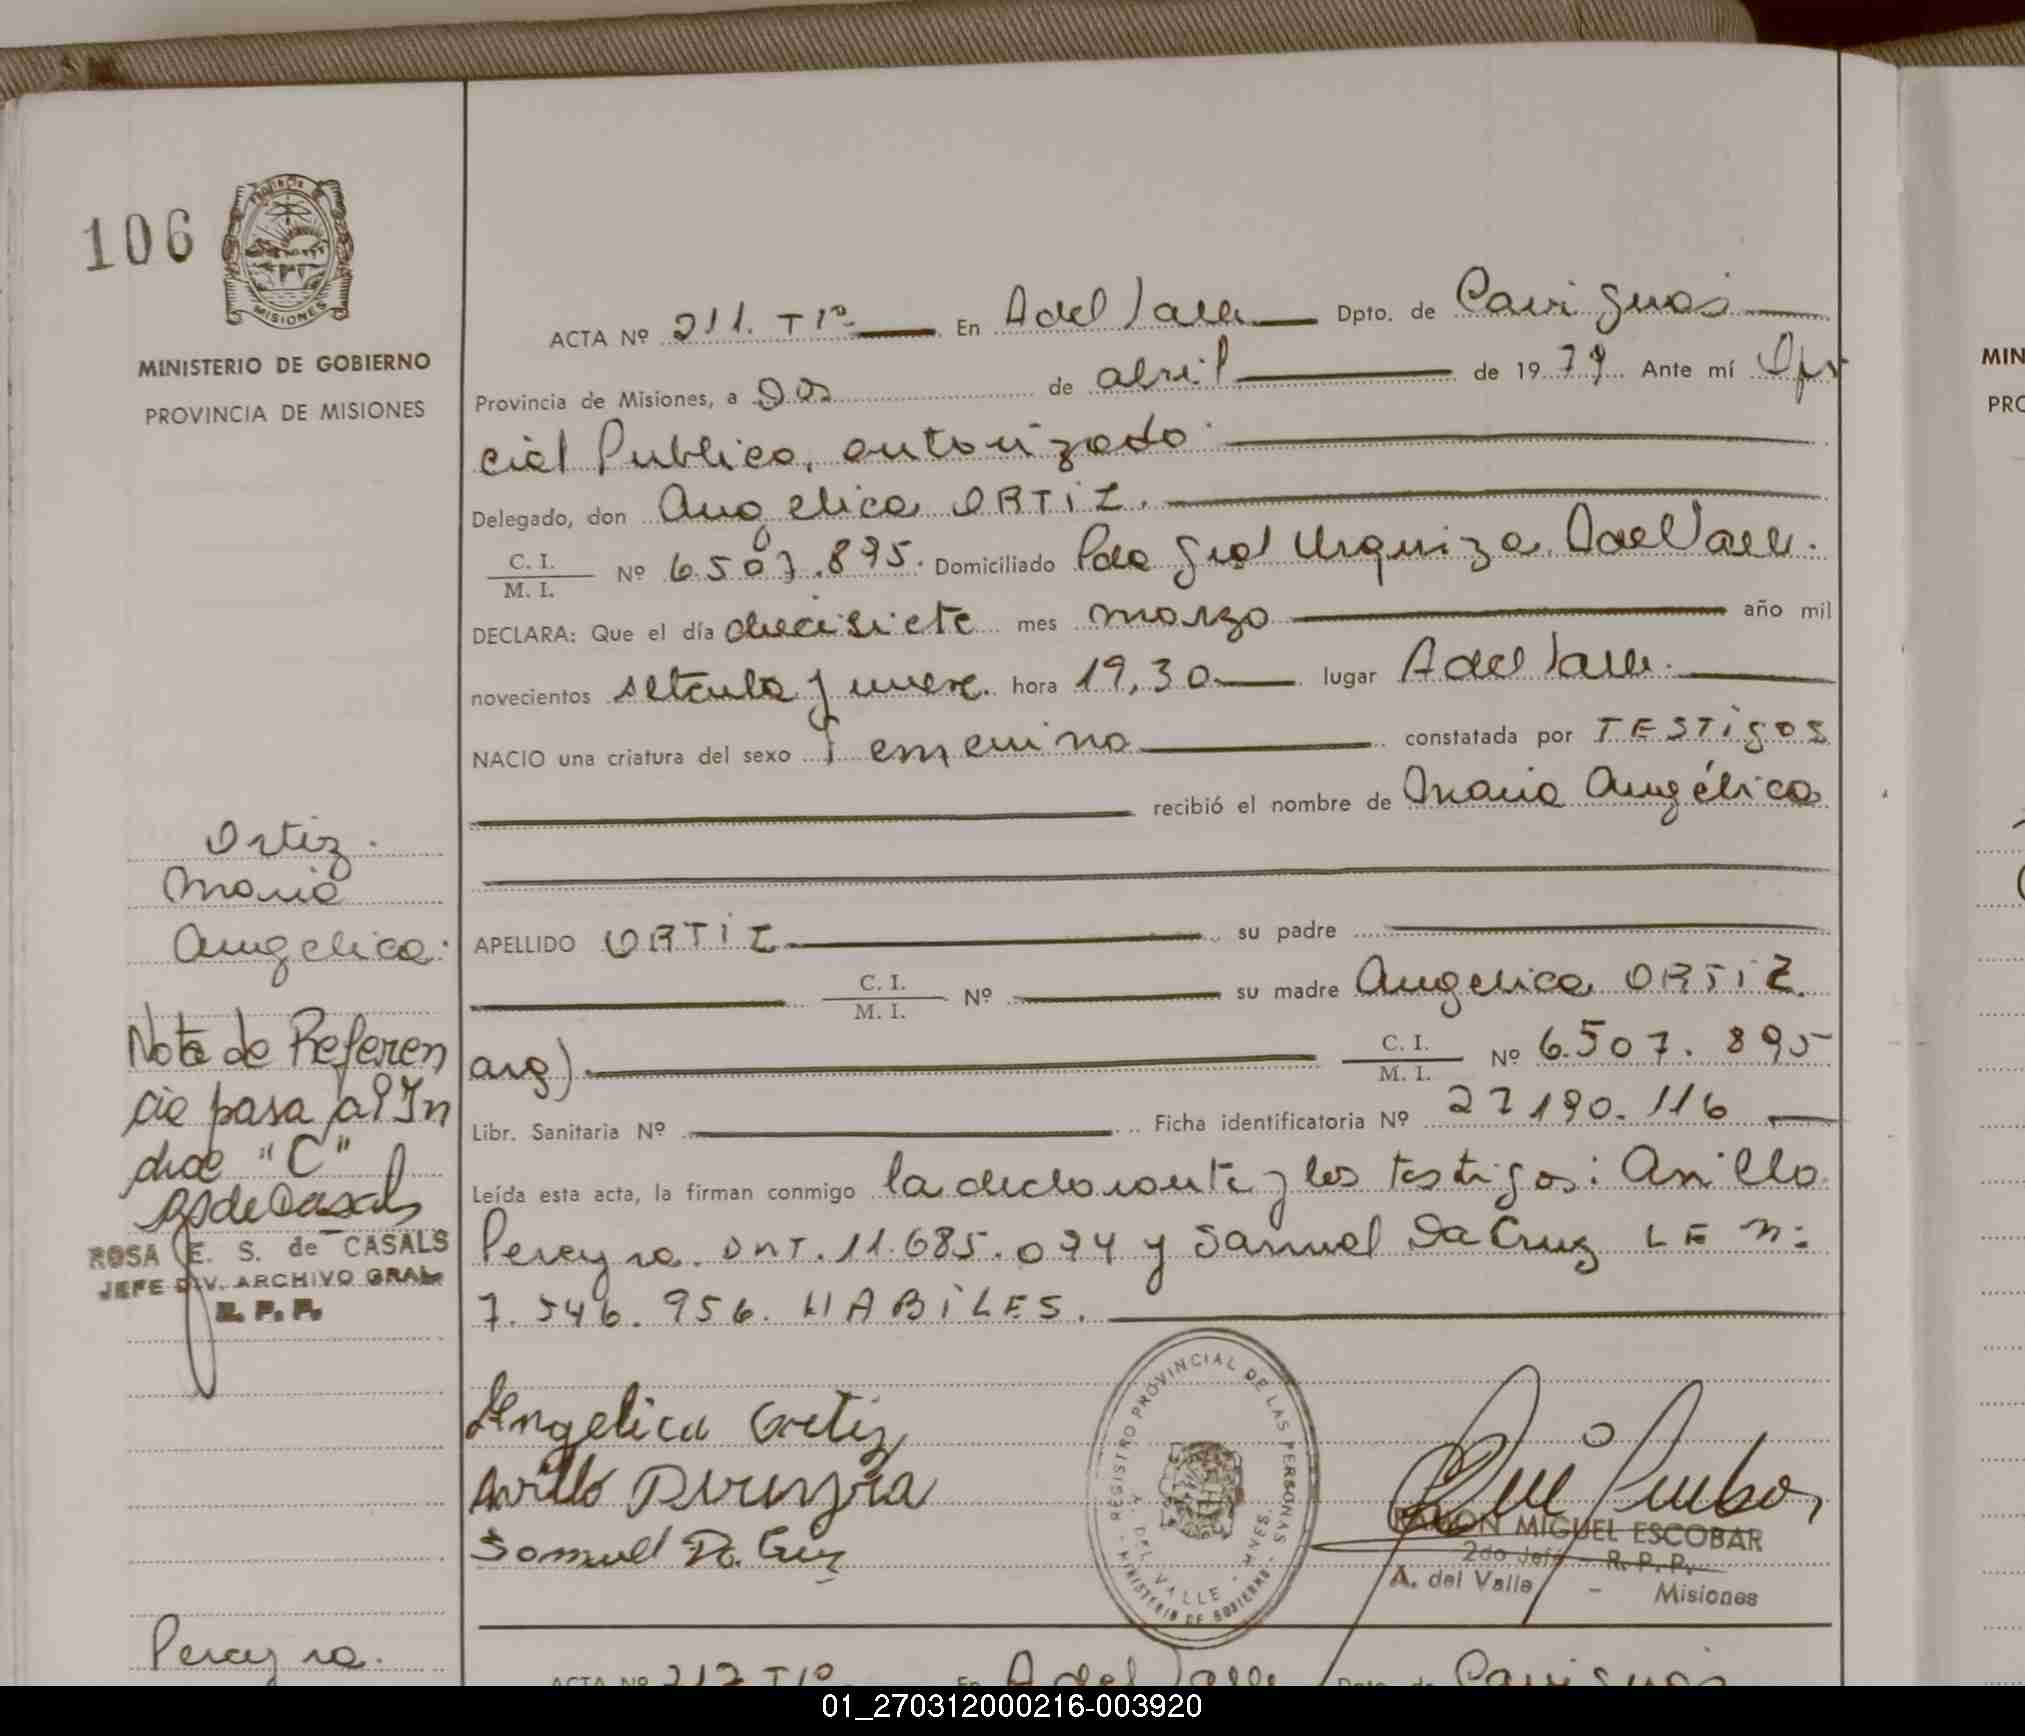 106
MISIONES
MINISTERIO DE GOBIERNO
PROVINCIA DE MISIONES
ACTA Nº 211. Tº 1º En A del Valle Dpto. de Cainguas
Provincia de Misiones, a Dos de abril de 1979 Ante mí Ofi
cial Publico, autorizado
Delegado, don Angelica ORTIZ.
C. I. / M. I. Nº 6.507.895. Domiciliado Pdo Gral Urquiza. A del Valle.
DECLARA: Que el día diecisiete mes marzo año mil
novecientos setenta y nueve. hora 19,30 lugar A del Valle.
NACIO una criatura del sexo Femenino constatada por TESTIGOS
recibió el nombre de Maria Angélica
APELLIDO ORTIZ su padre
C. I. / M. I. Nº su madre Angelica ORTIZ.
arg) C. I. / M. I. Nº 6.507.895
Libr. Sanitaria Nº Ficha identificatoria Nº 27190.116
Leída esta acta, la firman conmigo la declarante y los testigos:
Pereyra. DNI. 11.685.074 y Samuel Da Cruz LE Nº:
7.546.956. HABILES.
Ortiz.
Maria
Angelica.
Nota de Referen
cia pasa al In
dice "C"
ROSA E. S. de CASALS
JEFE DIV. ARCHIVO GRAL
R. P. P.
Angelica Ortiz
Samuel Da Cruz
REGISTRO PROVINCIAL DE LAS PERSONAS
A. DEL VALLE - MNES.
MINISTERIO DE GOBIERNO
RAMON MIGUEL ESCOBAR
2do Jefe - R. P. P.
A. del Valle - Misiones
Pereyra.
ACTA Nº 212 Tº 1º En A del Valle Dpto. de Cainguas
MIN
PRO
01_270312000216-003920